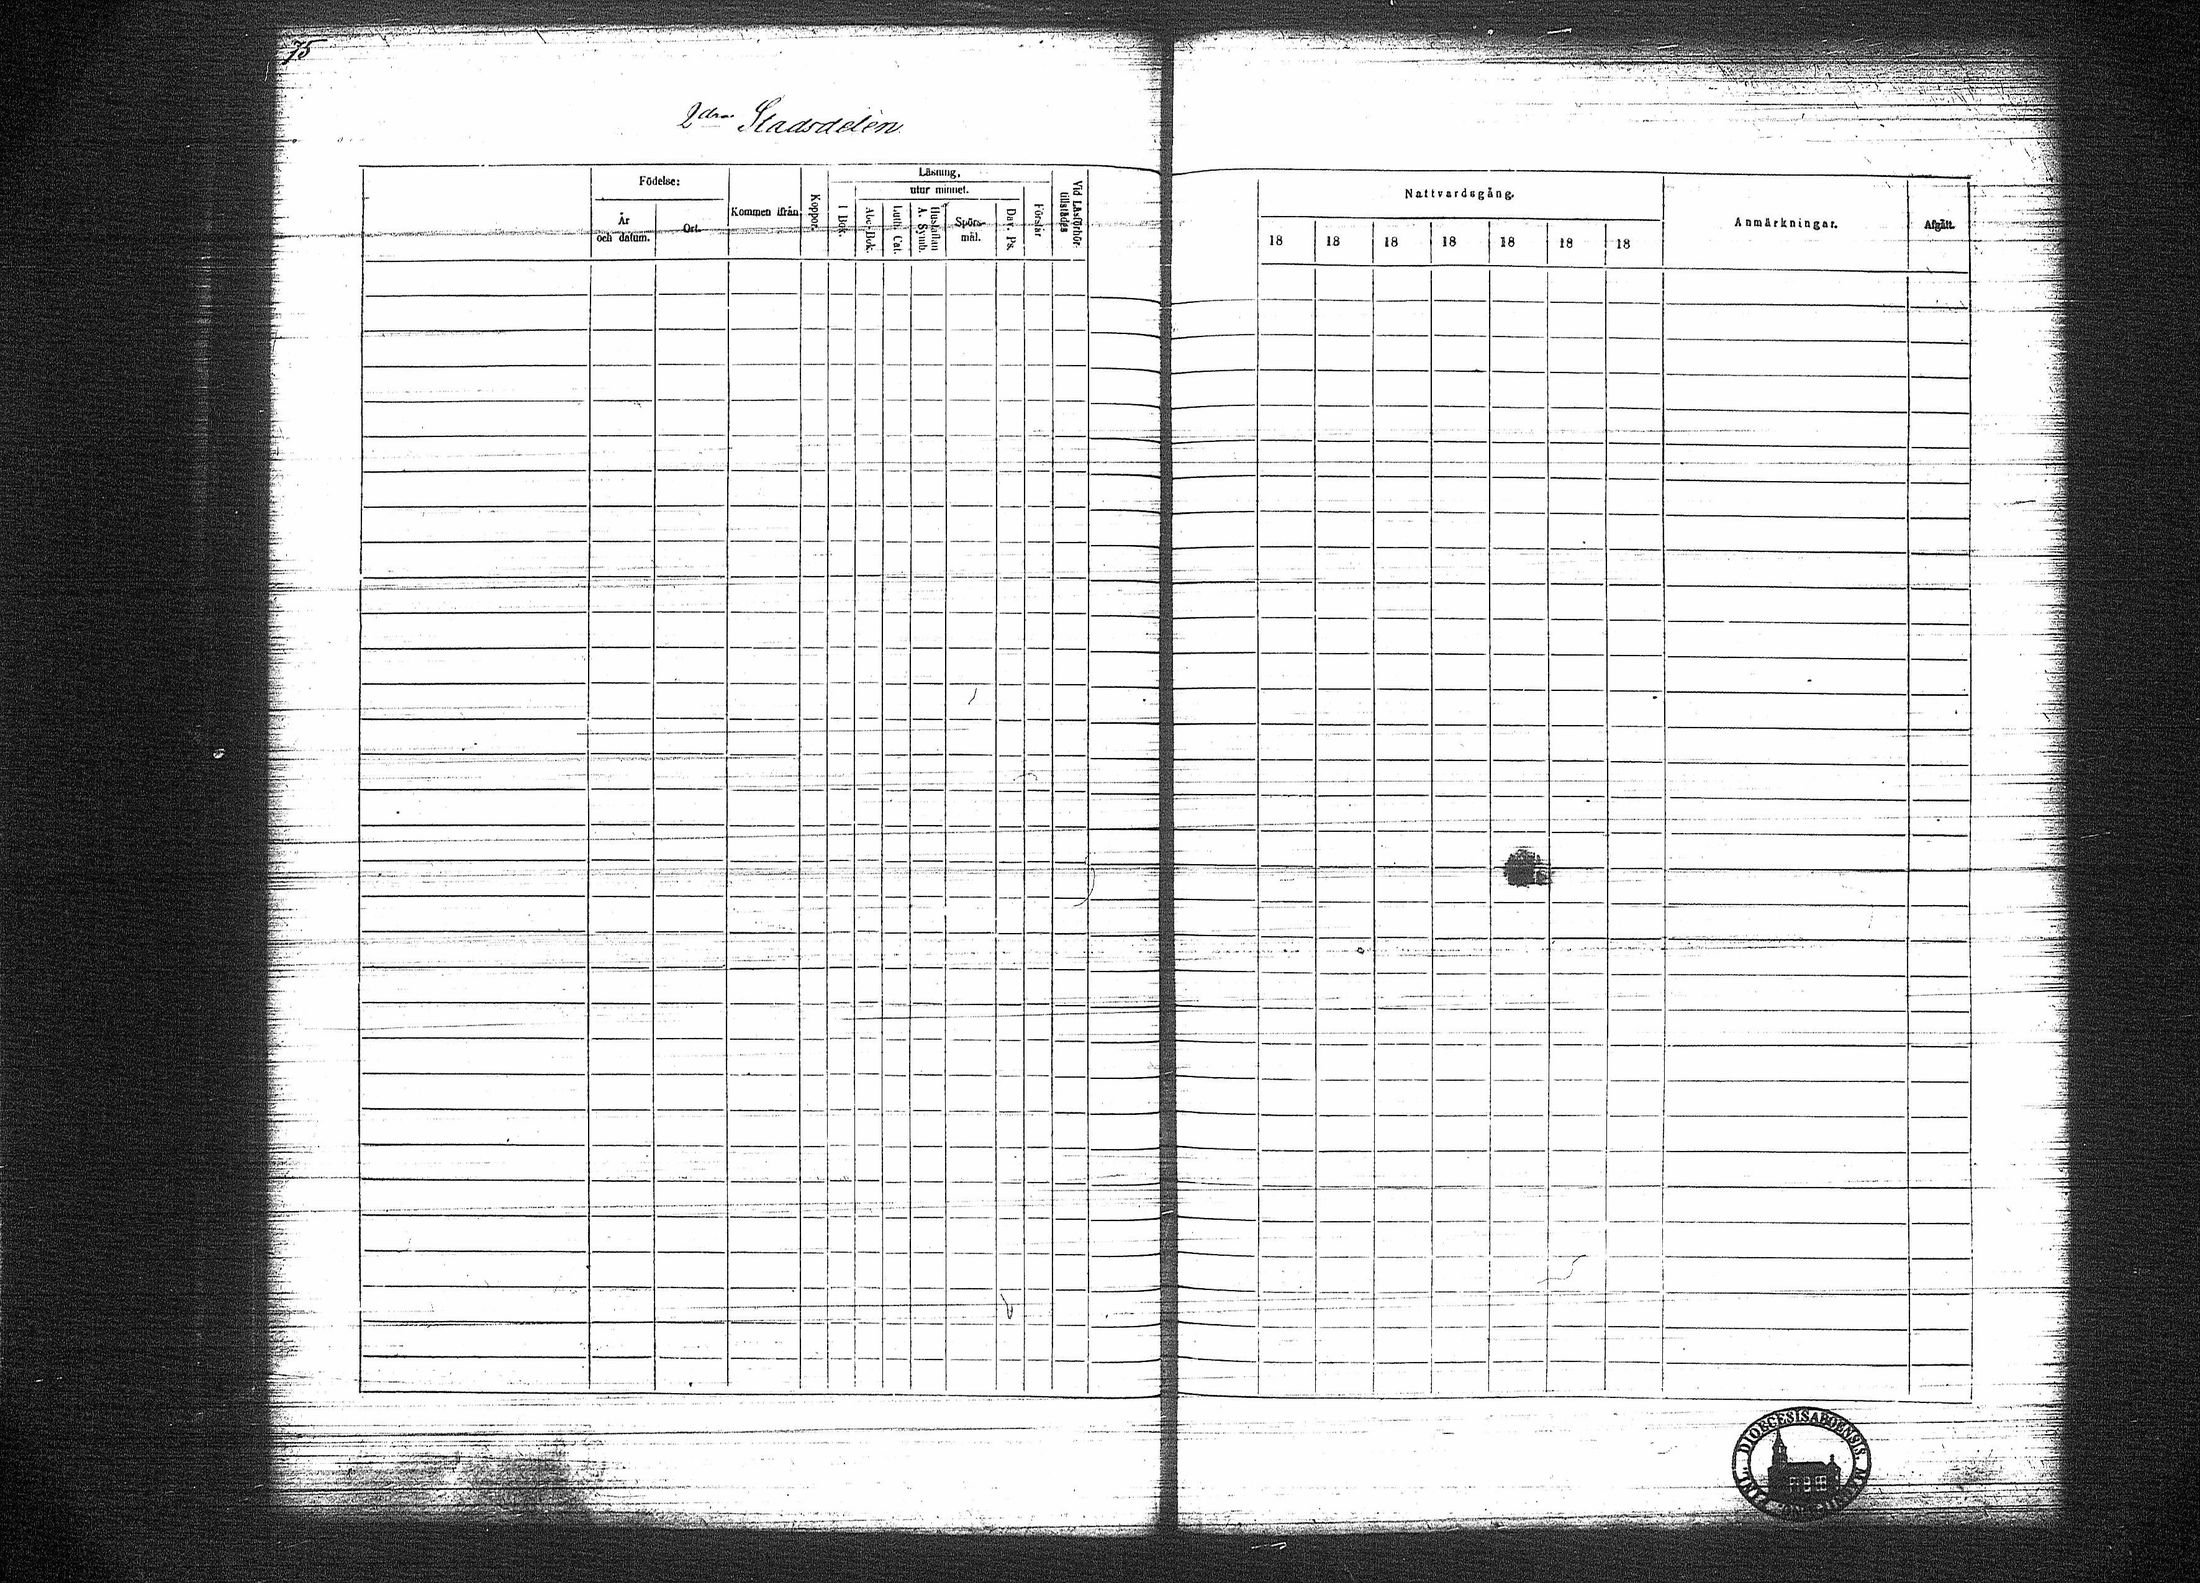 75
2dra Stadsdelen
Födelse:
År
och datum.
Ort.
Kommen ifrån
Koppor.
Läsning,
utur minnet.
I Bok.
Abc-Bok.
Luth. Cat.
Hustaflan
A. Symb.
Spörs-
mål.
Dav. Ps.
Förstår
Vid Läsförhör
tillstädes
Nattvardsgång.
18 18 18 18 18 18 18
Anmärkningar.
Afgått.
DIOECESIS ABOENSIS